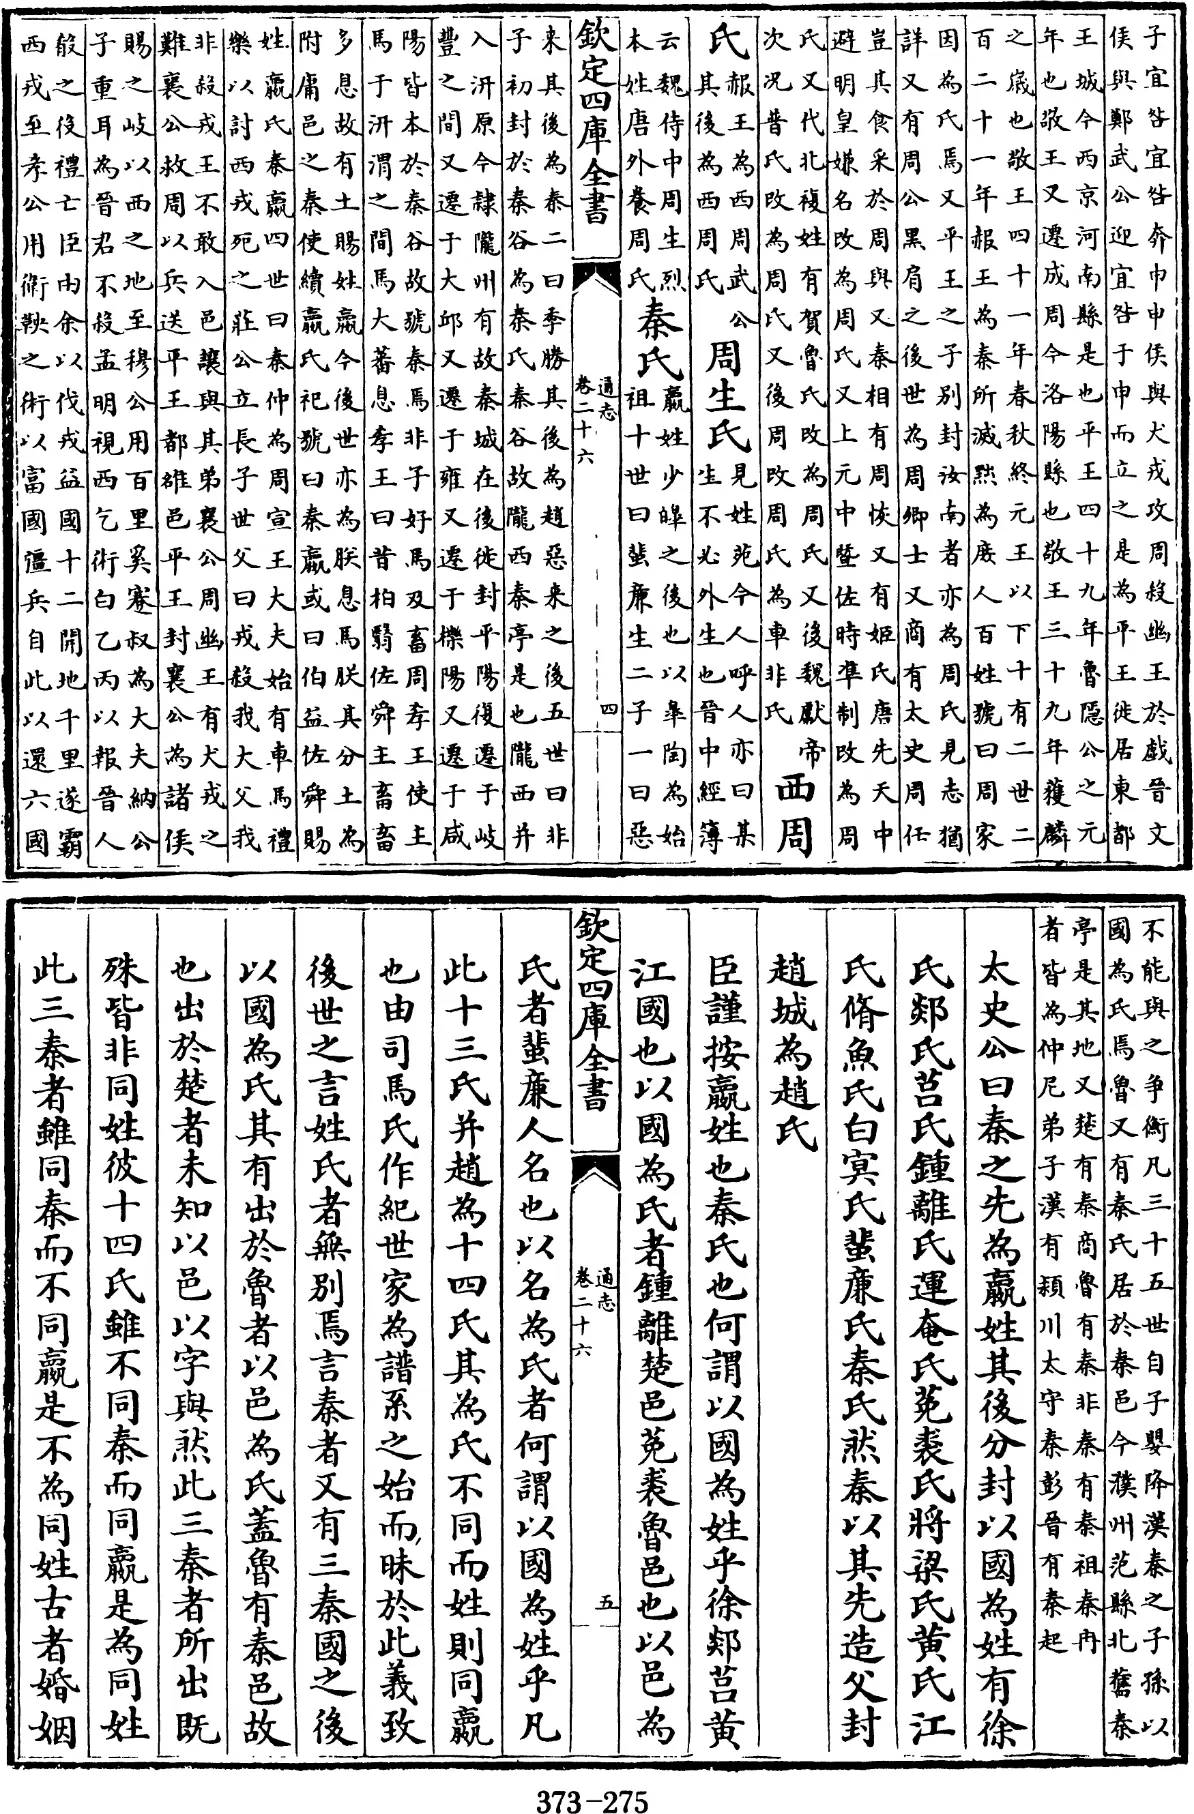 子宜咎宜咎奔巾申侯與犬戎攻周殺幽王於戲晉文
侯與鄭武公迎宜咎于申而立之是為平王徙居東都
王城今西京河南縣是也平王四十九年魯隱公之元
年也敬王又遷成周今洛陽縣也敬王三十九年獲麟
之歲也敬王四十一年春秋終元王以下十有二世二
百二十一年赧王為秦所滅黜為庶人百姓號曰周家
因為氏焉又平王之子別封汝南者亦為周氏見志猶
詳又有周公黑肩之後世為周卿士又商有太史周任
豈其食采於周與又秦相有周㤥又有姬氏唐先天中
避明皇嫌名改為周氏又上元中暨佐時準制改為周
氏又代北複姓有賀魯氏改為周氏又後魏獻帝
次況昔氏改為周氏又後周改周氏為車非氏
西周
氏
赧王為西周武公
其後為西周氏
周生氏
見姓苑今人呼人亦曰某
生不必外生也晉中經簿
云魏侍中周生烈
本姓唐外養周氏
秦氏
嬴姓少皞之後也以皋陶為始
祖十世曰蜚廉生二子一曰惡
欽定四庫全書
通志
卷二十六
四
來其後為秦二曰季勝其後為趙惡來之後五世曰非
子初封於秦谷為秦氏秦谷故隴西秦亭是也隴西并
入汧原今隸隴州有故秦城在後徙封平陽復遷于岐
豐之間又遷于大邱又遷于雍又遷于櫟陽又遷于咸
陽皆本於秦谷故號秦焉非子好馬及畜周孝王使主
馬于汧渭之間馬大蕃息孝王曰昔柏翳佐舜主畜畜
多息故有土賜姓嬴今後世亦為朕息馬朕其分土為
附庸邑之秦使續嬴氏祀號曰秦嬴或曰伯益佐舜賜
姓嬴氏秦嬴四世曰秦仲為周宣王大夫始有車馬禮
樂以討西戎死之莊公立長子世父曰戎殺我大父我
非殺戎王不敢入邑讓與其弟襄公周幽王有犬戎之
難襄公救周以兵送平王都雒邑平王封襄公為諸侯
賜之岐以西之地至穆公用百里奚蹇叔為大夫納公
子重耳為晉君不殺孟明視西乞術白乙丙以報晉人
殽之後禮亡臣由余以伐戎益國十二開地千里遂霸
西戎至孝公用衞鞅之術以富國彊兵自此以還六國
不能與之爭衡凡三十五世自子嬰降漢秦之子孫以
國為氏焉魯又有秦氏居於秦邑今濮州范縣北舊秦
亭是其地又楚有秦商魯有秦非秦有秦祖秦冉
者皆為仲尼弟子漢有潁川太守秦彭晉有秦起
太史公曰秦之先為嬴姓其後分封以國為姓有徐
氏郯氏莒氏鍾離氏運奄氏菟裘氏將梁氏黃氏江
氏脩魚氏白冥氏蜚廉氏秦氏然秦以其先造父封
趙城為趙氏
臣謹按嬴姓也秦氏也何謂以國為姓乎徐郯莒黃
江國也以國為氏者鍾離楚邑菟裘魯邑也以邑為
欽定四庫全書
通志
卷二十六
五
氏者蜚廉人名也以名為氏者何謂以國為姓乎凡
此十三氏并趙為十四氏其為氏不同而姓則同嬴
也由司馬氏作紀世家為譜系之始而昧於此義致
後世之言姓氏者無別焉言秦者又有三秦國之後
以國為氏其有出於魯者以邑為氏蓋魯有秦邑故
也出於楚者未知以邑以字與然此三秦者所出既
殊皆非同姓彼十四氏雖不同秦而同嬴是為同姓
此三秦者雖同秦而不同嬴是不為同姓古者婚姻
373-275